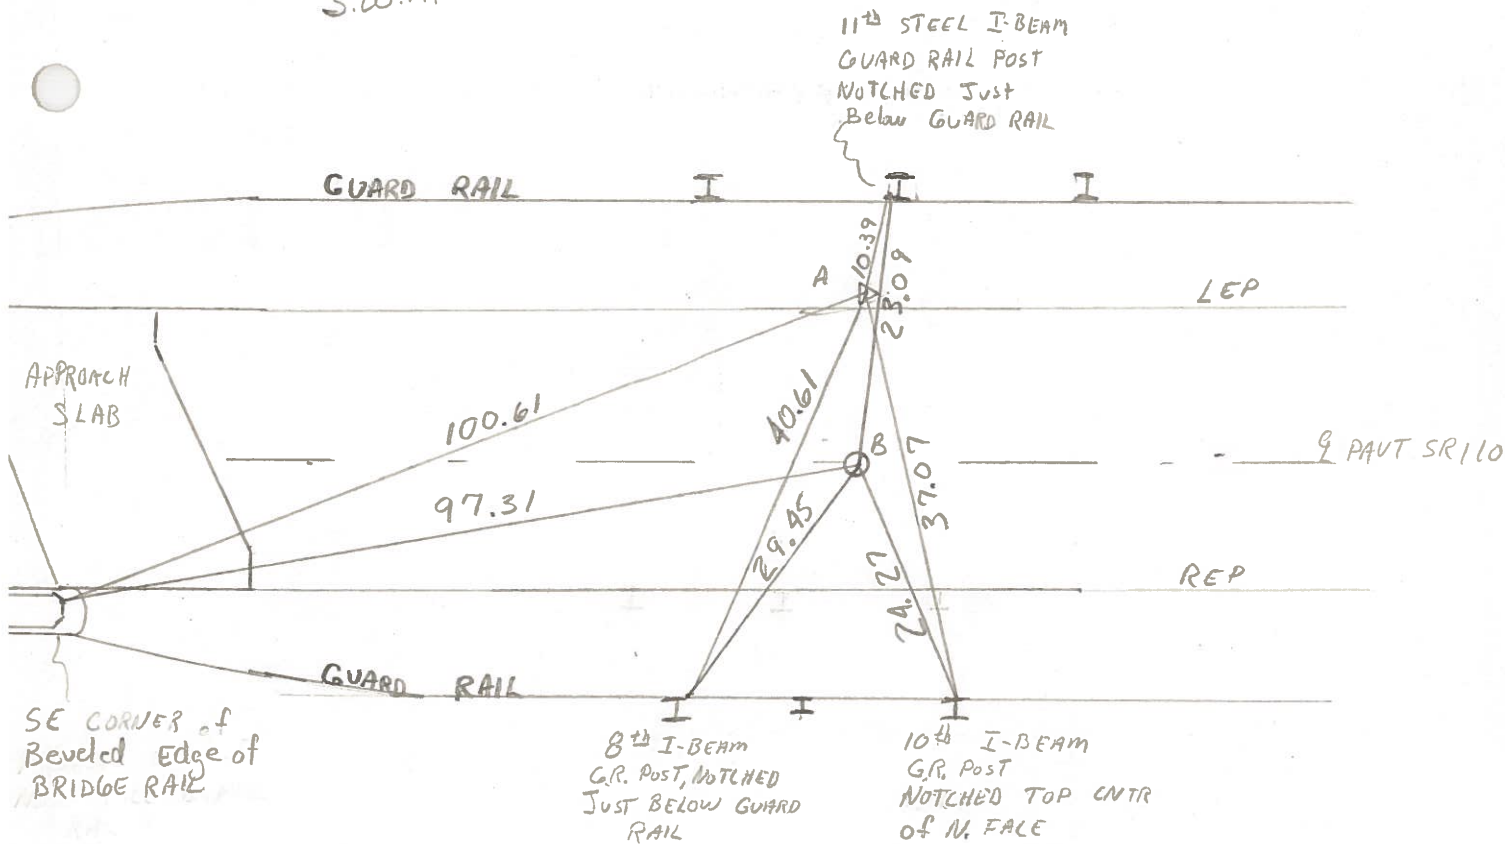 11th STEEL I-BEAM
GUARD RAIL POST
NOTCHED JUST
Below GUARD RAIL
GUARD RAIL
10.39
23.09
A
LEP
APPROACH
SLAB
100.61
40.61
B
37.07
℄ PAVT SR110
97.31
29.45
24.27
REP
GUARD RAIL
SE CORNER of
Beveled Edge of
BRIDGE RAIL
8th I-BEAM
G.R. POST, NOTCHED
JUST BELOW GUARD
RAIL
10th I-BEAM
G.R. POST
NOTCHED TOP CNTR
of N. FACE